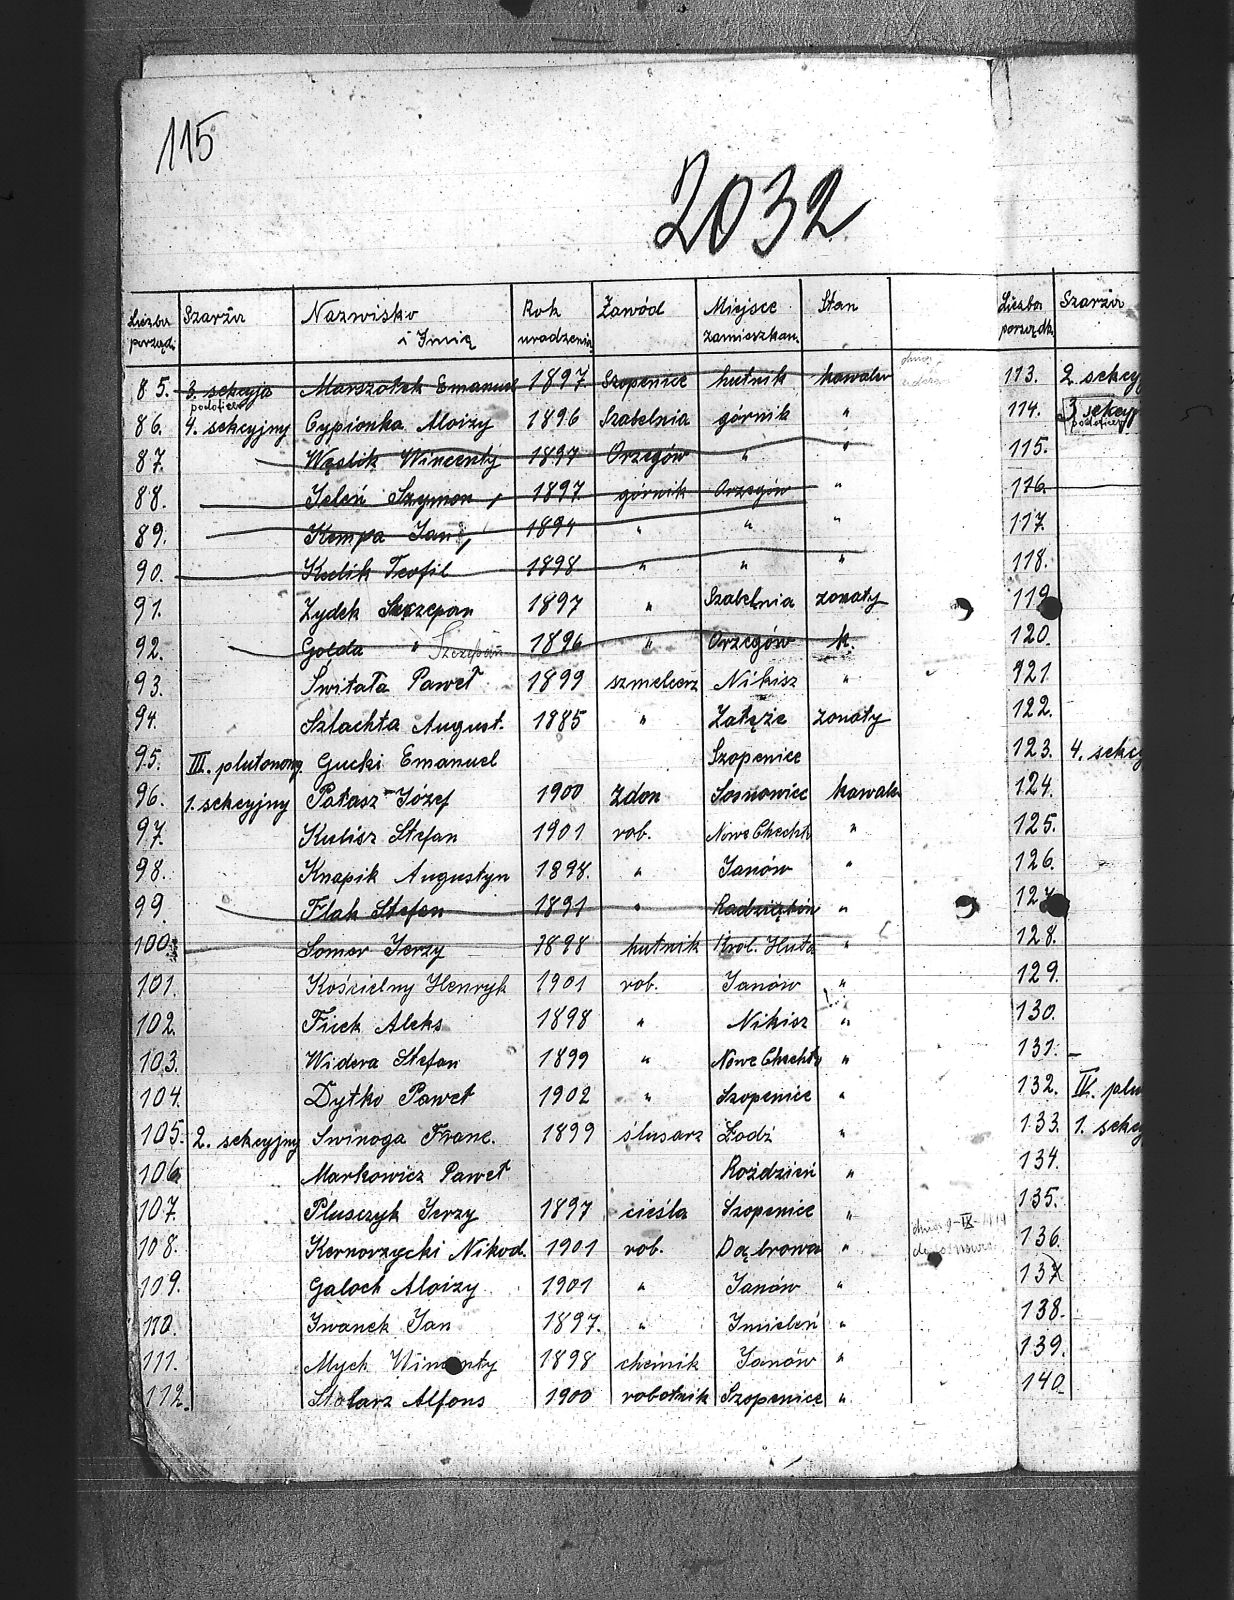 115
2032
Liczba porząd. Szarża Nazwisko i Imię Rok urodzenia Zawód Miejsce zamieszkan. Stan Liczba porządk. Szarża
85. 3. sekcyja podoficer Marszołek Emanuel 1897 Szopenice hutnik kawaler 113. 2. sekcyj
86. 4. sekcyjny Cypionka Aloizy 1896 Szabelnia górnik " 114. 3 sekcyj podoficer
87. Węslik Wincenty 1897 Orzegów " " 115.
88. Jeleń Szymon, 1897 górnik Orzegów " 116.
89. Kempa Jan, 1894 " " " 117.
90. Kulik Teofil 1898 " " " 118.
91. Zydek Szczepan 1897 " Szabelnia zonaty 119
92. Golda " Szczepan 1896 " Orzegów k. 120.
93. Świtała Paweł 1899 szmelcerz Nikisz " 121
94. Szlachta August. 1885 " Załęże zonaty 122.
95. III. plutonowy. Gucki Emanuel Szopenice 123. 4. sekcy
96. 1. sekcyjny Pałasz Józef 1900 Zdon Sosnowiec kawaler 124.
97. Kulisz Stefan 1901 rob. Nowe Checht " 125.
98. Knapik Augustyn 1898. " Janów " 126.
99. Flak Stefan 1891 " Radzionków " 127.
100. Somer Jerzy 1898 hutnik Krol. Huta " 128.
101. Kościelny Henryk 1901 rob. Janów " 129.
102. Ficek Aleks 1898 " Nikisz " 130.
103. Widera Stefan 1899 " Nowe Checht " 131.
104. Dytko Paweł 1902 " Szopenice " 132. IV. plu
105. 2. sekcyjny Swinoga Franc. 1899 ślusarz Łodź " 133. 1. sekcy
106. Markowicz Paweł Roździeń " 134.
107. Plusczyk Jerzy 1897 cieśla Szopenice " 135.
108. Kernorzycki Nikod. 1901 rob. Dąbrowa " dnia 9-IX-1919 136.
109. Galoch Aloizy 1901 " Janów " 137
110. Iwanek Jan 1897. " Imieleń " 138.
111. Mych Wincenty 1898 chemik Janów " 139.
112. Stolarz Alfons 1900 robotnik Szopenice " 140